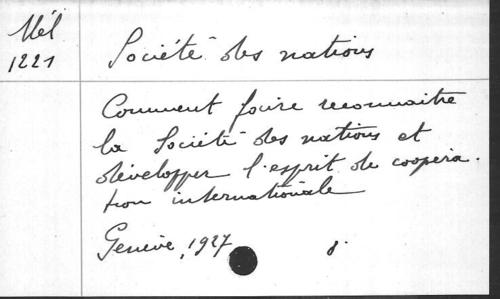 Mél
1221
Société des nations
Comment faire reconnaitre
la Société des nations et
développer l'esprit de coopéra-
tion internationale
Genève, 1927 8°